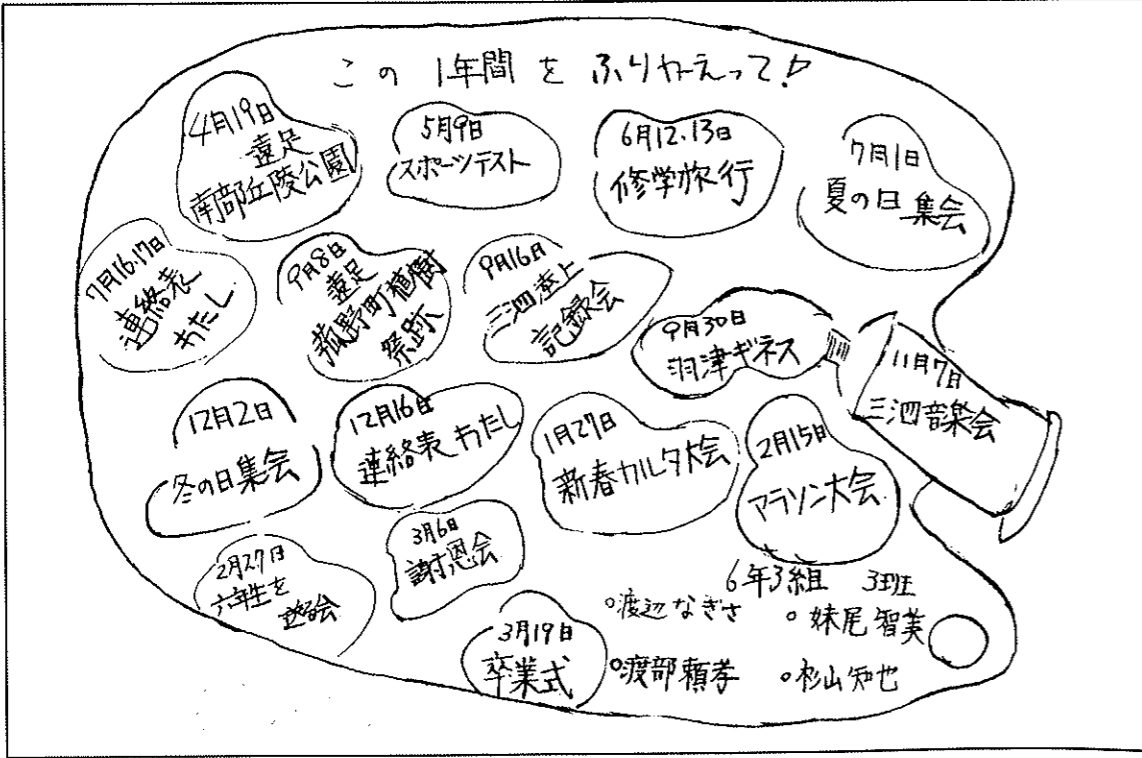 この 1年間を ふりかえって!
4月19日
遠足
南部丘陵公園
5月9日
スポーツテスト
6月12.13日
修学旅行
7月1日
夏の日集会
7月16.17日
連絡表
わたし
9月8日
遠足
菰野町植樹
祭跡
9月16日
三泗陸上
記録会
9月30日
羽津ギネス
11月7日
三泗音楽会
12月2日
冬の日集会
12月16日
連絡表わたし
1月27日
新春カルタ大会
2月15日
マラソン大会
2月27日
六年生を
送る会
3月6日
謝恩会
3月19日
卒業式
6年3組 3班
○渡辺なぎさ
○妹尾智美
○渡部頼孝
○杉山知也